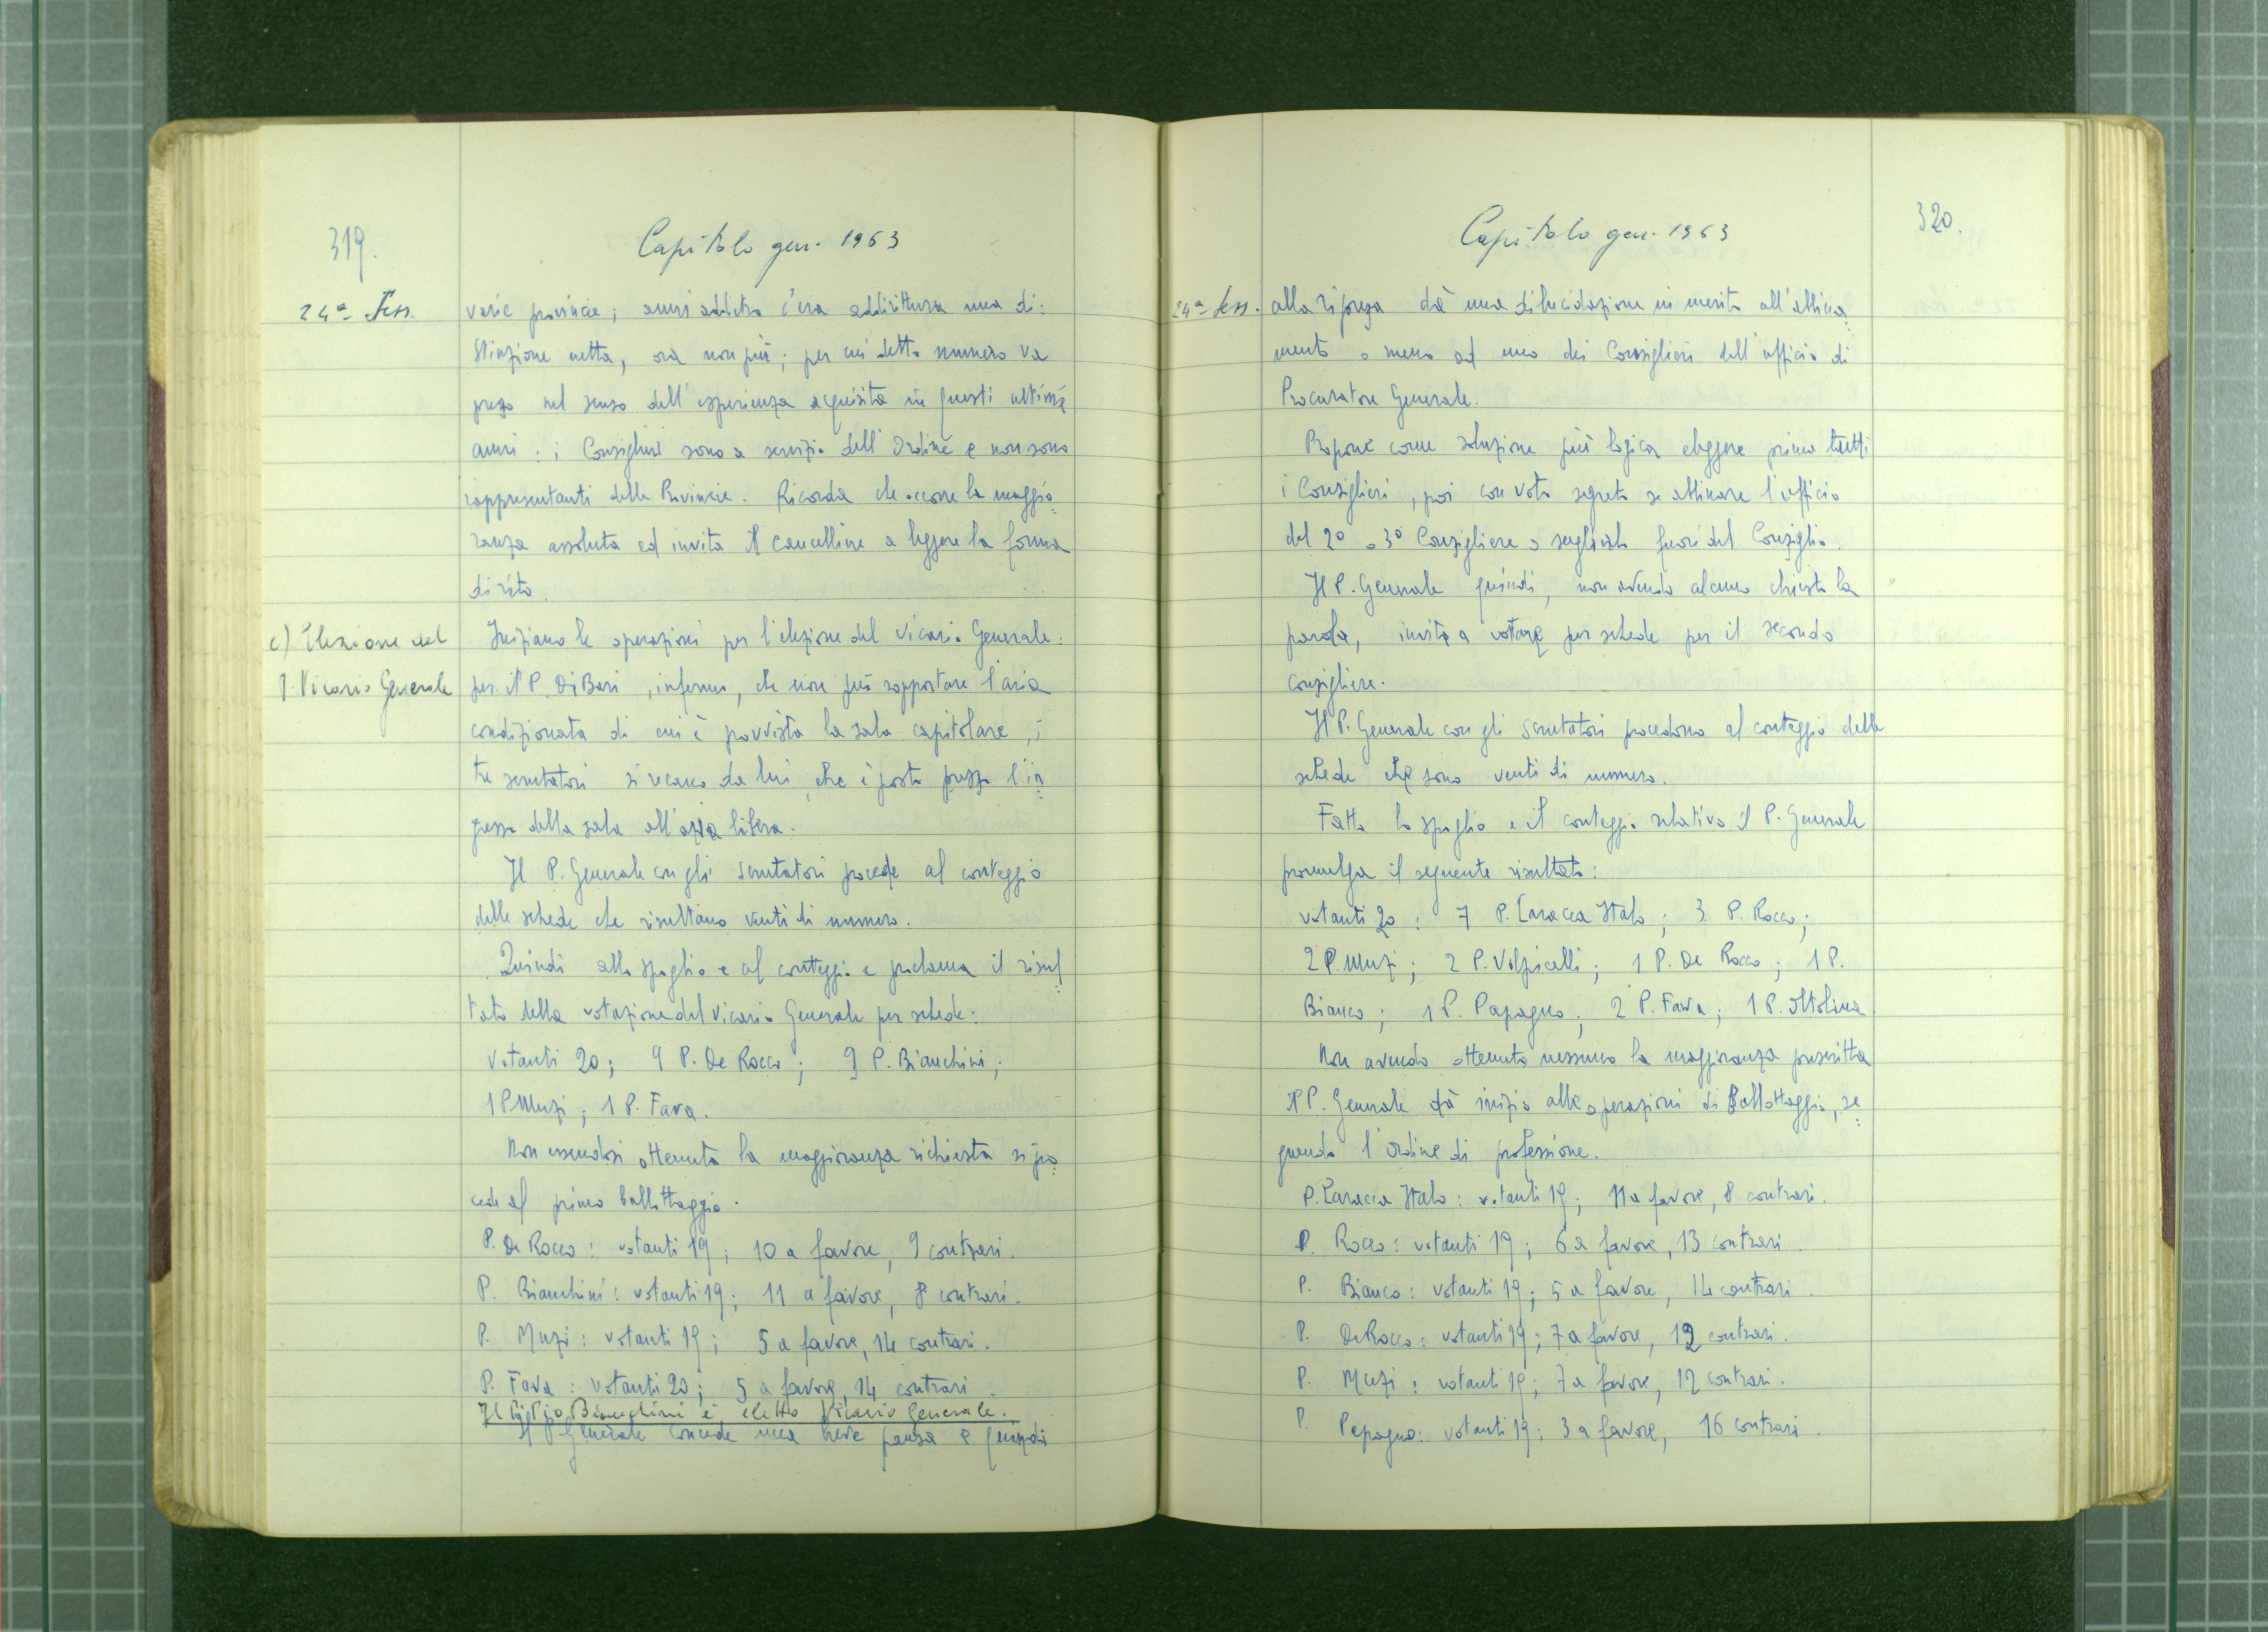 319.
Capitolo gen. 1963
24ª Sess.
varie provincie; anni addietro c'era addirittura una di:
stinzione netta, ora non più; per cui detto numero va
preso nel senso dell'esperienza acquisita in questi ultimi
anni: i Consiglieri sono a servizio dell'Ordine e non sono
rappresentanti delle Provincie. Ricorda che occorre la maggio=
ranza assoluta ed invita il cancelliere a leggere la forma
di rito.
c) Elezione del
P. Vicario Generale
Iniziano le operazioni per l'elezione del Vicario Generale:
per il P. Di Bari, infermo, che non può sopportare l'aria
condizionata di cui è provvista la sala capitolare, i
tre scrutatori si recano da lui, che è posto presso l'in=
gresso della sala all'aria libera.
Il P. Generale con gli scrutatori procede al conteggio
delle schede che risultano venti di numero.
Quindi allo spoglio e al conteggio e proclama il risul=
tato della votazione del Vicario Generale per schede:
Votanti 20; 9 P. De Rocco; 9 P. Bianchini;
1 P. Muzi; 1 P. Fava.
Non essendosi ottenuta la maggioranza richiesta si pro=
cede al primo ballottaggio.
P. De Rocco: votanti 19; 10 a favore, 9 contrari.
P. Bianchini: votanti 19; 11 a favore, 8 contrari.
P. Muzi: votanti 19; 5 a favore, 14 contrari.
P. Fava: votanti 20; 5 a favore, 14 contrari.
Il P. Pio Bianchini è eletto Vicario Generale.
Il P. Generale concede una breve pausa e quindi
Capitolo gen. 1963
320.
24ª Sess.
alla ripresa dà una dilucidazione in merito all'abbina=
mento o meno ad uno dei Consiglieri dell'ufficio di
Procuratore Generale.
Propone come soluzione più logica eleggere prima tutti
i Consiglieri, poi con voto segreto se abbinare l'ufficio
del 2º o 3º Consigliere o sceglierlo fuori del Consiglio.
Il P. Generale quindi, non avendo alcuno chiesto la
parola, invita a votare per schede per il secondo
consigliere.
Il P. Generale con gli scrutatori procedono al conteggio delle
schede che sono venti di numero.
Fatto lo spoglio e il conteggio relativo il P. Generale
promulga il seguente risultato:
votanti 20: 7 P. Laracca Italo; 3 P. Rocco;
2 P. Muzi; 2 P. Volpicelli; 1 P. De Rocco; 1 P.
Bianco; 1 P. Papagno; 2 P. Fava; 1 P. Ottolina
Non avendo ottenuto nessuno la maggioranza prescritta
il P. Generale dà inizio alle operazioni di Ballottaggio, se=
guendo l'ordine di professione.
P. Laracca Italo: votanti 19; 11 a favore, 8 contrari.
P. Rocco: votanti 19; 6 a favore, 13 contrari.
P. Bianco: votanti 19; 5 a favore, 14 contrari.
P. De Rocco: votanti 19; 7 a favore, 12 contrari.
P. Muzi: votanti 19; 7 a favore, 12 contrari.
P. Papagno: votanti 19; 3 a favore, 16 contrari.